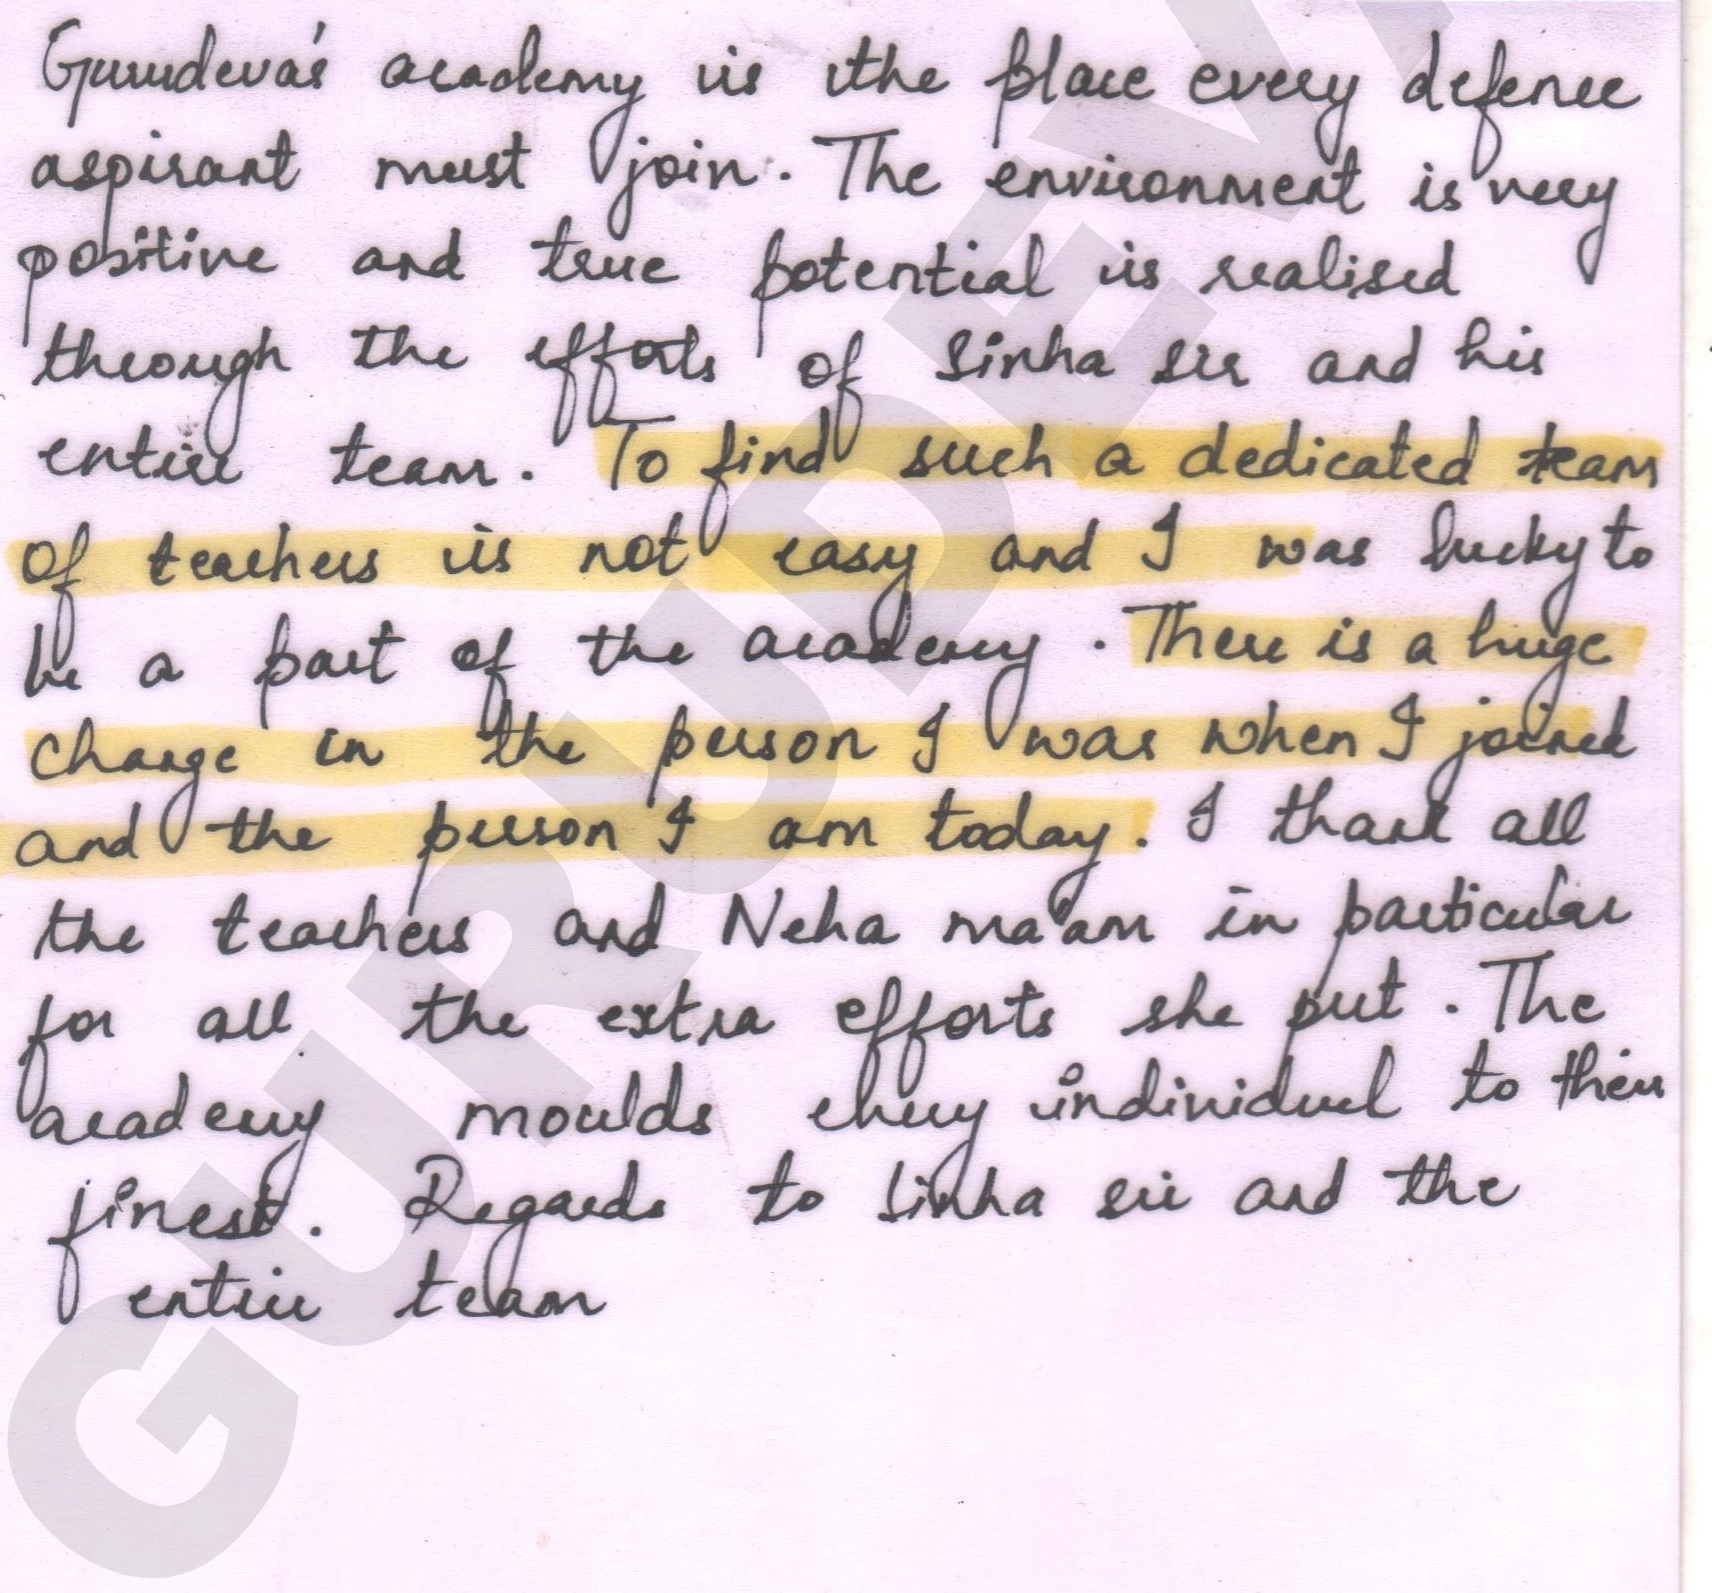 Gurudeva's academy is the place every defence
aspirant must join. The environment is very
positive and true potential is realised
through the efforts of Sinha sir and his
entire team. To find such a dedicated team
of teachers is not easy and I was lucky to
be a part of the academy. There is a huge
change in the person I was when I joined
and the person I am today. I thank all
the teachers and Neha ma'am in particular
for all the extra efforts she put. The
academy moulds every individual to their
finest. Regards to Sinha sir and the
entire team